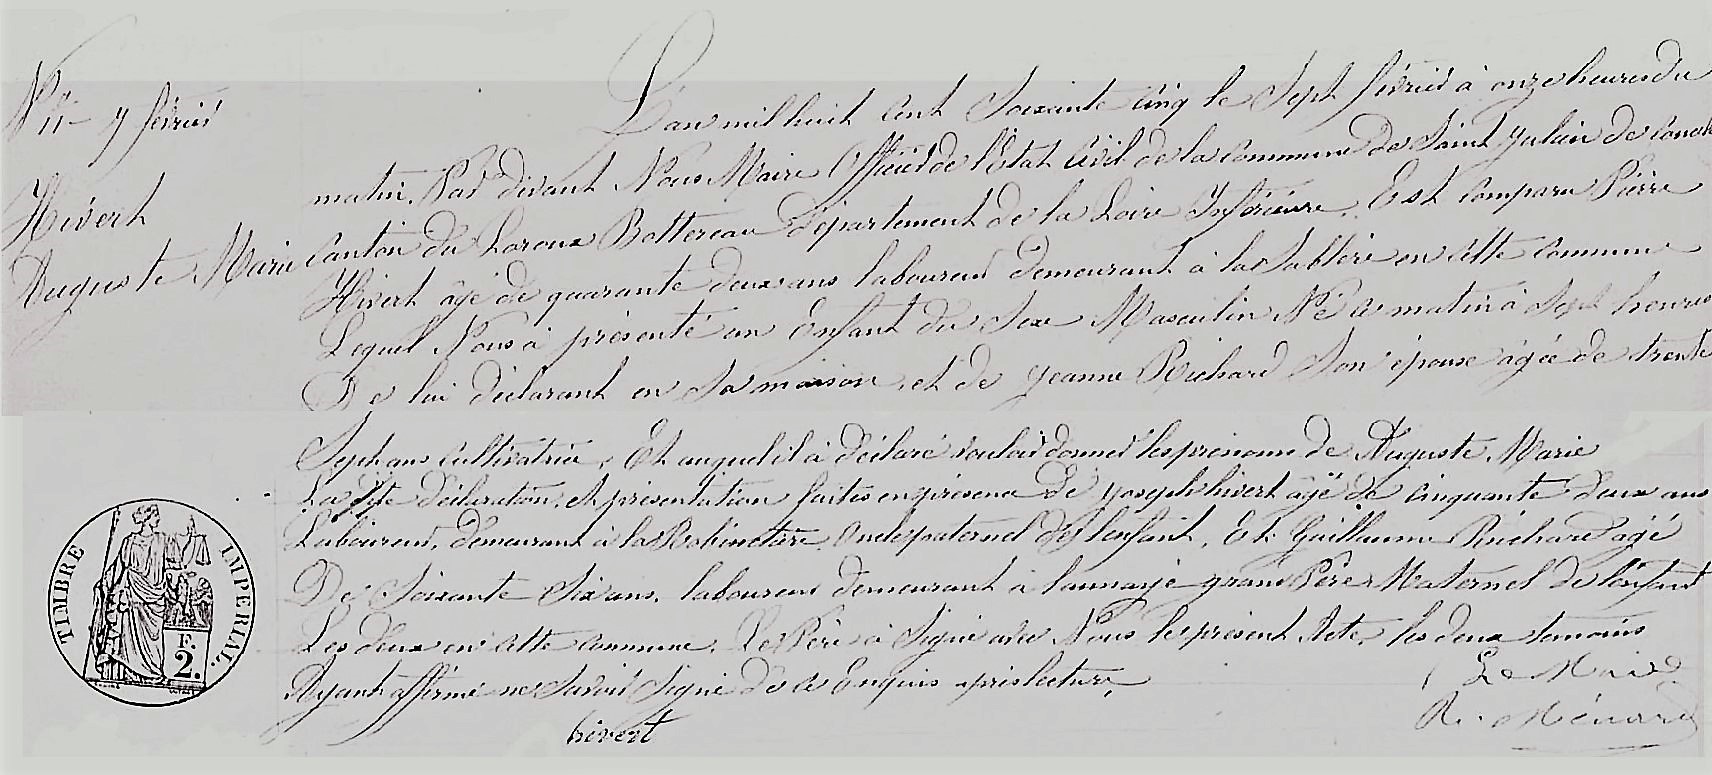 N° 11 - 7 février
Hivert
Auguste Marie
L'an mil huit cent Soixante Cinq le Sept février à onze heures du
matin. Par divant Nous Maire Officier de l'Etat Civil de la Commune de Saint Julien de Concelle
Canton du Loroux Bottereau Département de la Loire Inférieure. Est Comparu Pierre
Hivert âgé de quarante deux ans laboureur demeurant à la Sablère en cette Commune
Lequel Nous à présenté un Enfant du Sexe Masculin Né ce matin à Sept heures
De lui déclarant en Sa maison, et de Jeanne Richard Son épouse âgée de trente
Sept ans Cultivatrice, Et auquel il à déclaré vouloir donner les prénoms de Auguste Marie
La dite déclaration, et présentation faites en présence De Joseph hivert âgé de Cinquante deux ans
Laboureur, demeurant à la Babinetière Oncle paternel de l'enfant, Et Guillaume Richard agé
De Soixante Six ans, laboureur demeurant à grand Père Maternel de l'enfant
Les deux en cette Commune, Le Père à Signé avec Nous le présent Acte, les deux temoins
Ayant affirmé ne Savoir Signé De ce Enquis après lecture,
hivert
Le Maire
R. Ménard
TIMBRE IMPERIAL.
F.
2.